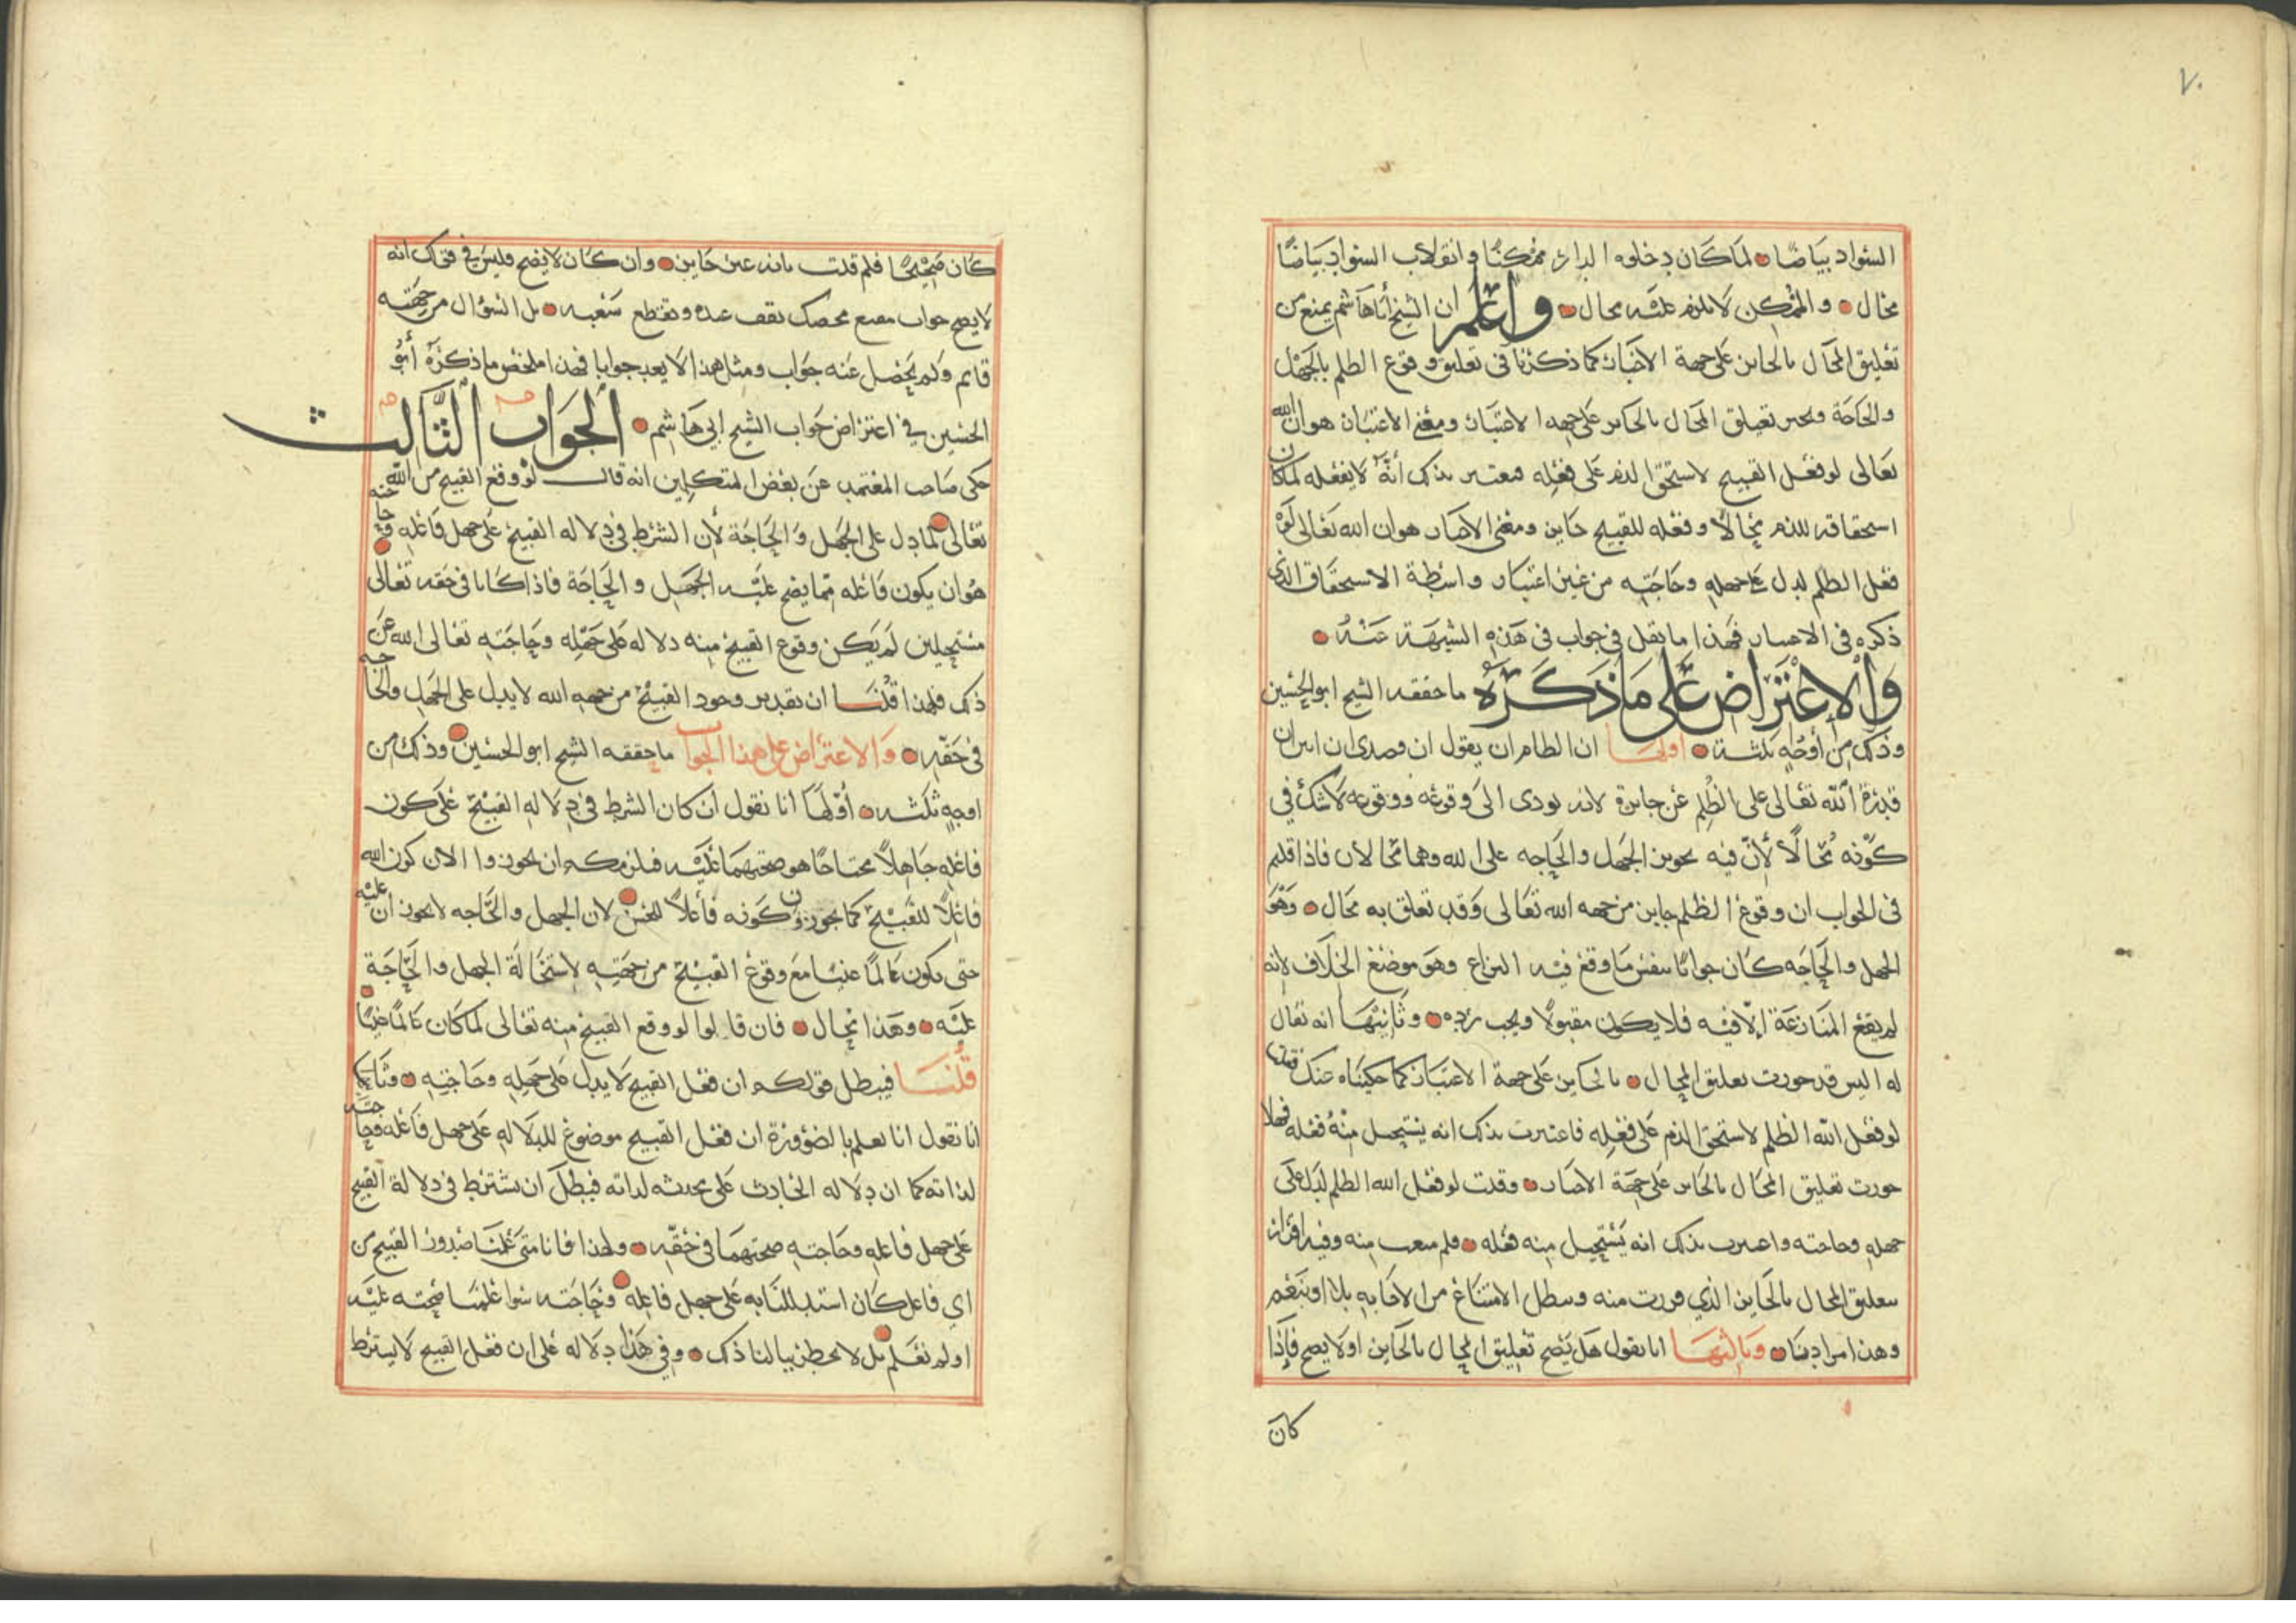 ٧٠
السواد بياضا لما كان دخلوه الدار ممكنا وانقلاب السواد بياضا
محال والممكن لا يلزم عليه محال واعلم ان الشيخ أبا هاشم يمنع من
تعليق المحال بالجايز على جهة الاخبار كما ذكرنا في تعليق وقوع الظلم بالجهل
والحاجة ويجيز تعليق المحال بالجايز على جهة الاعتبار ومعنى الاعتبار هو ان الله
تعالى لو فعل القبيح لاستحق الذم على فعله فيعتبر بذلك أنه لا يفعله لما كان
استحقاقه للذم محالا وفعله للقبيح جايز ومعنى الاخبار هو ان الله تعالى لو
فعل الظلم لدل على جهله وحاجته من غير اعتبار واسطة الاستحقاق الذي
ذكره في الاعتبار فهذا ما نقل في جواب في هذه الشبهة عنه
والاعتراض على ما ذكره ما حققه الشيخ ابو الحسين
وذلك من أوجه ثلثة اولها ان الظلم ان يقول ان قصدي ان ابين ان
قدرة الله تعالى على الظلم غير جايزة لانه يودى الى وقوعه ووقوعه لا شك في
كونه محالا لأن فيه تجويز الجهل والحاجه على الله وهما محالان فاذا قلتم
في الجواب ان وقوع الظلم جايز من جهه الله تعالى وقد تعلق به محال وهو
الجهل والحاجه كان جوابا بنفس ما وقع فيه النزاع وهو موضع الخلاف لانه
لم يقع المنازعة إلا فيه فلا يكون مقبولا ويجب رده وثانيها انه تقال
له اليس قد جوزت تعليق المحال بالجايز على جهة الاعتبار كما حكيناه عنك فقلت
لو فعل الله الظلم لاستحق الذم على فعله فاعتبرت بذلك انه يستحيل منه فعله فهلا
جوزت تعليق المحال بالجايز على جهة الاخبار وقلت لو فعل الله الظلم لدل على
جهله وحاجته واعتبرت بذلك انه يستحيل منه فعله فلم منعت منه وفيه اقرار
بتعليق المحال بالجايز الذي فررت منه وبطل الامتناع من الاجابه بلا او بنعم
وهذا مرادنا وثالثها انا نقول هل يصح تعليق المحال بالجايز او لا يصح فإذا
كان
كان صحيحا فلم قلت بانه غير جايز وان كان لا يصح فليس في قولك انه
لا يصح جواب مقنع محصل نقف عنده ويقطع شغبه بل السؤال من جهته
قايم ولم يحصل عنه جواب ومثل هذا لا يعد جوابا فهذا ملخص ما ذكره أبو
الحسين في اعتراض جواب الشيخ ابي هاشم الجواب الثالث
حكى صاحب المعتمد عن بعض المتكلمين انه قال لو وقع القبيح من الله
تعالى لما دل على الجهل والحاجة لأن الشرط في دلاله القبيح على جهل فاعله وحاجته
هو ان يكون فاعله مما يصح عليه الجهل والحاجة فاذا كانا في حقه تعالى
مستحيلين لم يكن وقوع القبيح منه دلاله على جهله وحاجته تعالى الله عن
ذلك فلهذا قلنا ان تقدير وجود القبيح من جهه الله لا يدل على الجهل والحاجه
في حقه والاعتراض على هذا الجواب ما حققه الشيخ ابو الحسين وذلك من
اوجه ثلثه أولها انا نقول ان كان الشرط في دلاله القبيح على كون
فاعله جاهلا محتاجا هو صحتهما عليه فيلزمكم ان تجوزوا الان كون الله
فاعلا للقبيح كما تجوزون كونه فاعلا للحسن لان الجهل والحاجه لا يجوزان عليه
حتى يكون عالما غنيا مع وقوع القبيح من جهته لاستحالة الجهل والحاجة
عليه وهذا محال فان قالوا لو وقع القبيح منه تعالى لما كان عالما غنيا
قلنا فيبطل قولكم ان فعل القبيح لا يدل على جهله وحاجته وثانيها
انا نقول انا نعلم بالضرورة ان فعل القبيح موضوع للدلاله على جهل فاعله وحاجته
لذاته كما ان دلاله الحادث على محدثه لذاته فبطل ان يشترط في دلالة القبيح
على جهل فاعله وحاجته صحتهما في حقه ولهذا فانا متى علمنا صدور القبيح من
اي فاعل كان استدللنا به على جهل فاعله وحاجته سوا علمنا صحته عليه
او لم نعلم بل لا يخطر ببالنا ذلك وفي هذا دلاله على ان فعل القبيح لا يشترط